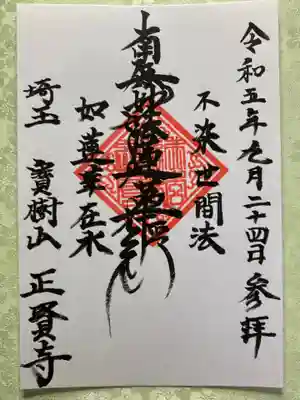 令和五年九月二十四日参拝
不染世間法
南無妙法蓮華経
如蓮華在水
埼玉 寳樹山 正賢寺